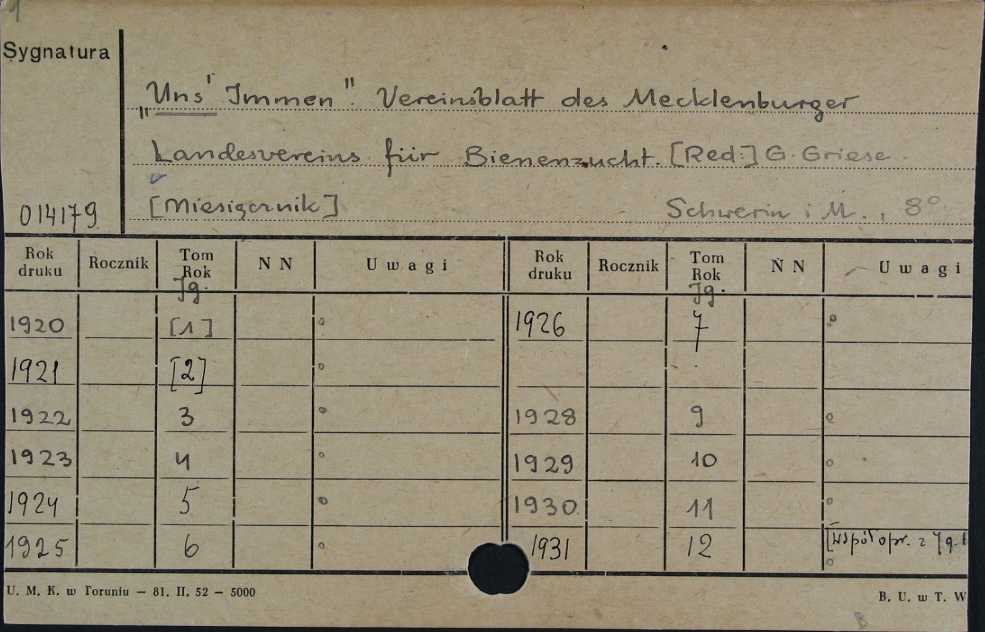 1
Sygnatura
„Uns' Immen". Vereinsblatt des Mecklenburger
Landesvereins für Bienenzucht. [Red:] G. Griese.
[Miesięcznik] Schwerin i. M., 8°
014179
Rok druku Rocznik Tom Rok Jg. NN Uwagi Rok druku Rocznik Tom Rok Jg. NN Uwagi
1920 [1] ° 1926 7 °
1921 [2] °
1922 3 ° 1928 9 °
1923 4 ° 1929 10 °
1924 5 ° 1930 11 °
1925 6 ° 1931 12 [współopr. z Jg. °
U. M. K. w Toruniu — 81. II. 52 — 5000 B. U. w T. W